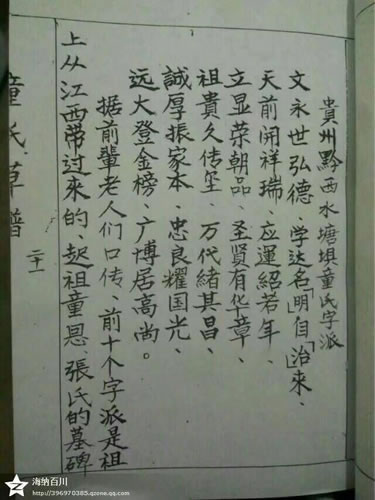 貴州黔西水塘垻童氏字派
文永世弘德、学达名「明」自「治」來、
天前開祥瑞、应運紹若年、
立显荣朝品、圣賢有华章、
祖貴久传玺、万代緒其昌、
誠厚振家本、忠良耀国光、
远大登金榜、广博居高尚。
据前輩老人们口传、前十个字派是祖
上从江西带过来的、起祖童恩、張氏的墓碑
童氏草譜
二十一
海纳百川
http://396970385.qzone.qq.com